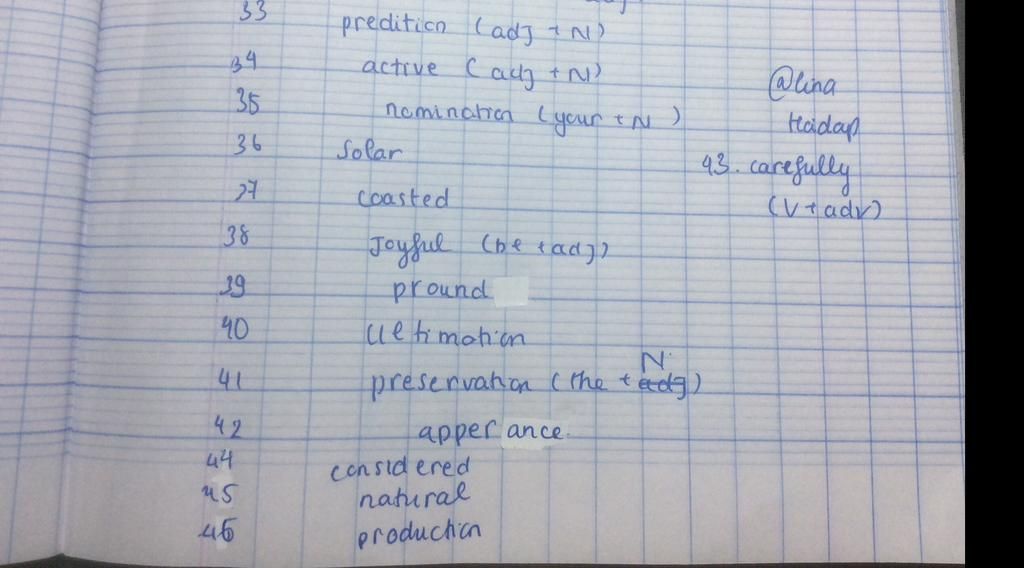 33 predition (adj + N)
34 active (adj + N)
35 nomination (your + N)
36 Solar
37 coasted
38 Joyful (be + adj)
39 pround
40 ultimation
41 preservation (the + adj) N
42 apperance.
44 considered
45 natural
46 production
@lina
43. carefully
(V + adv)